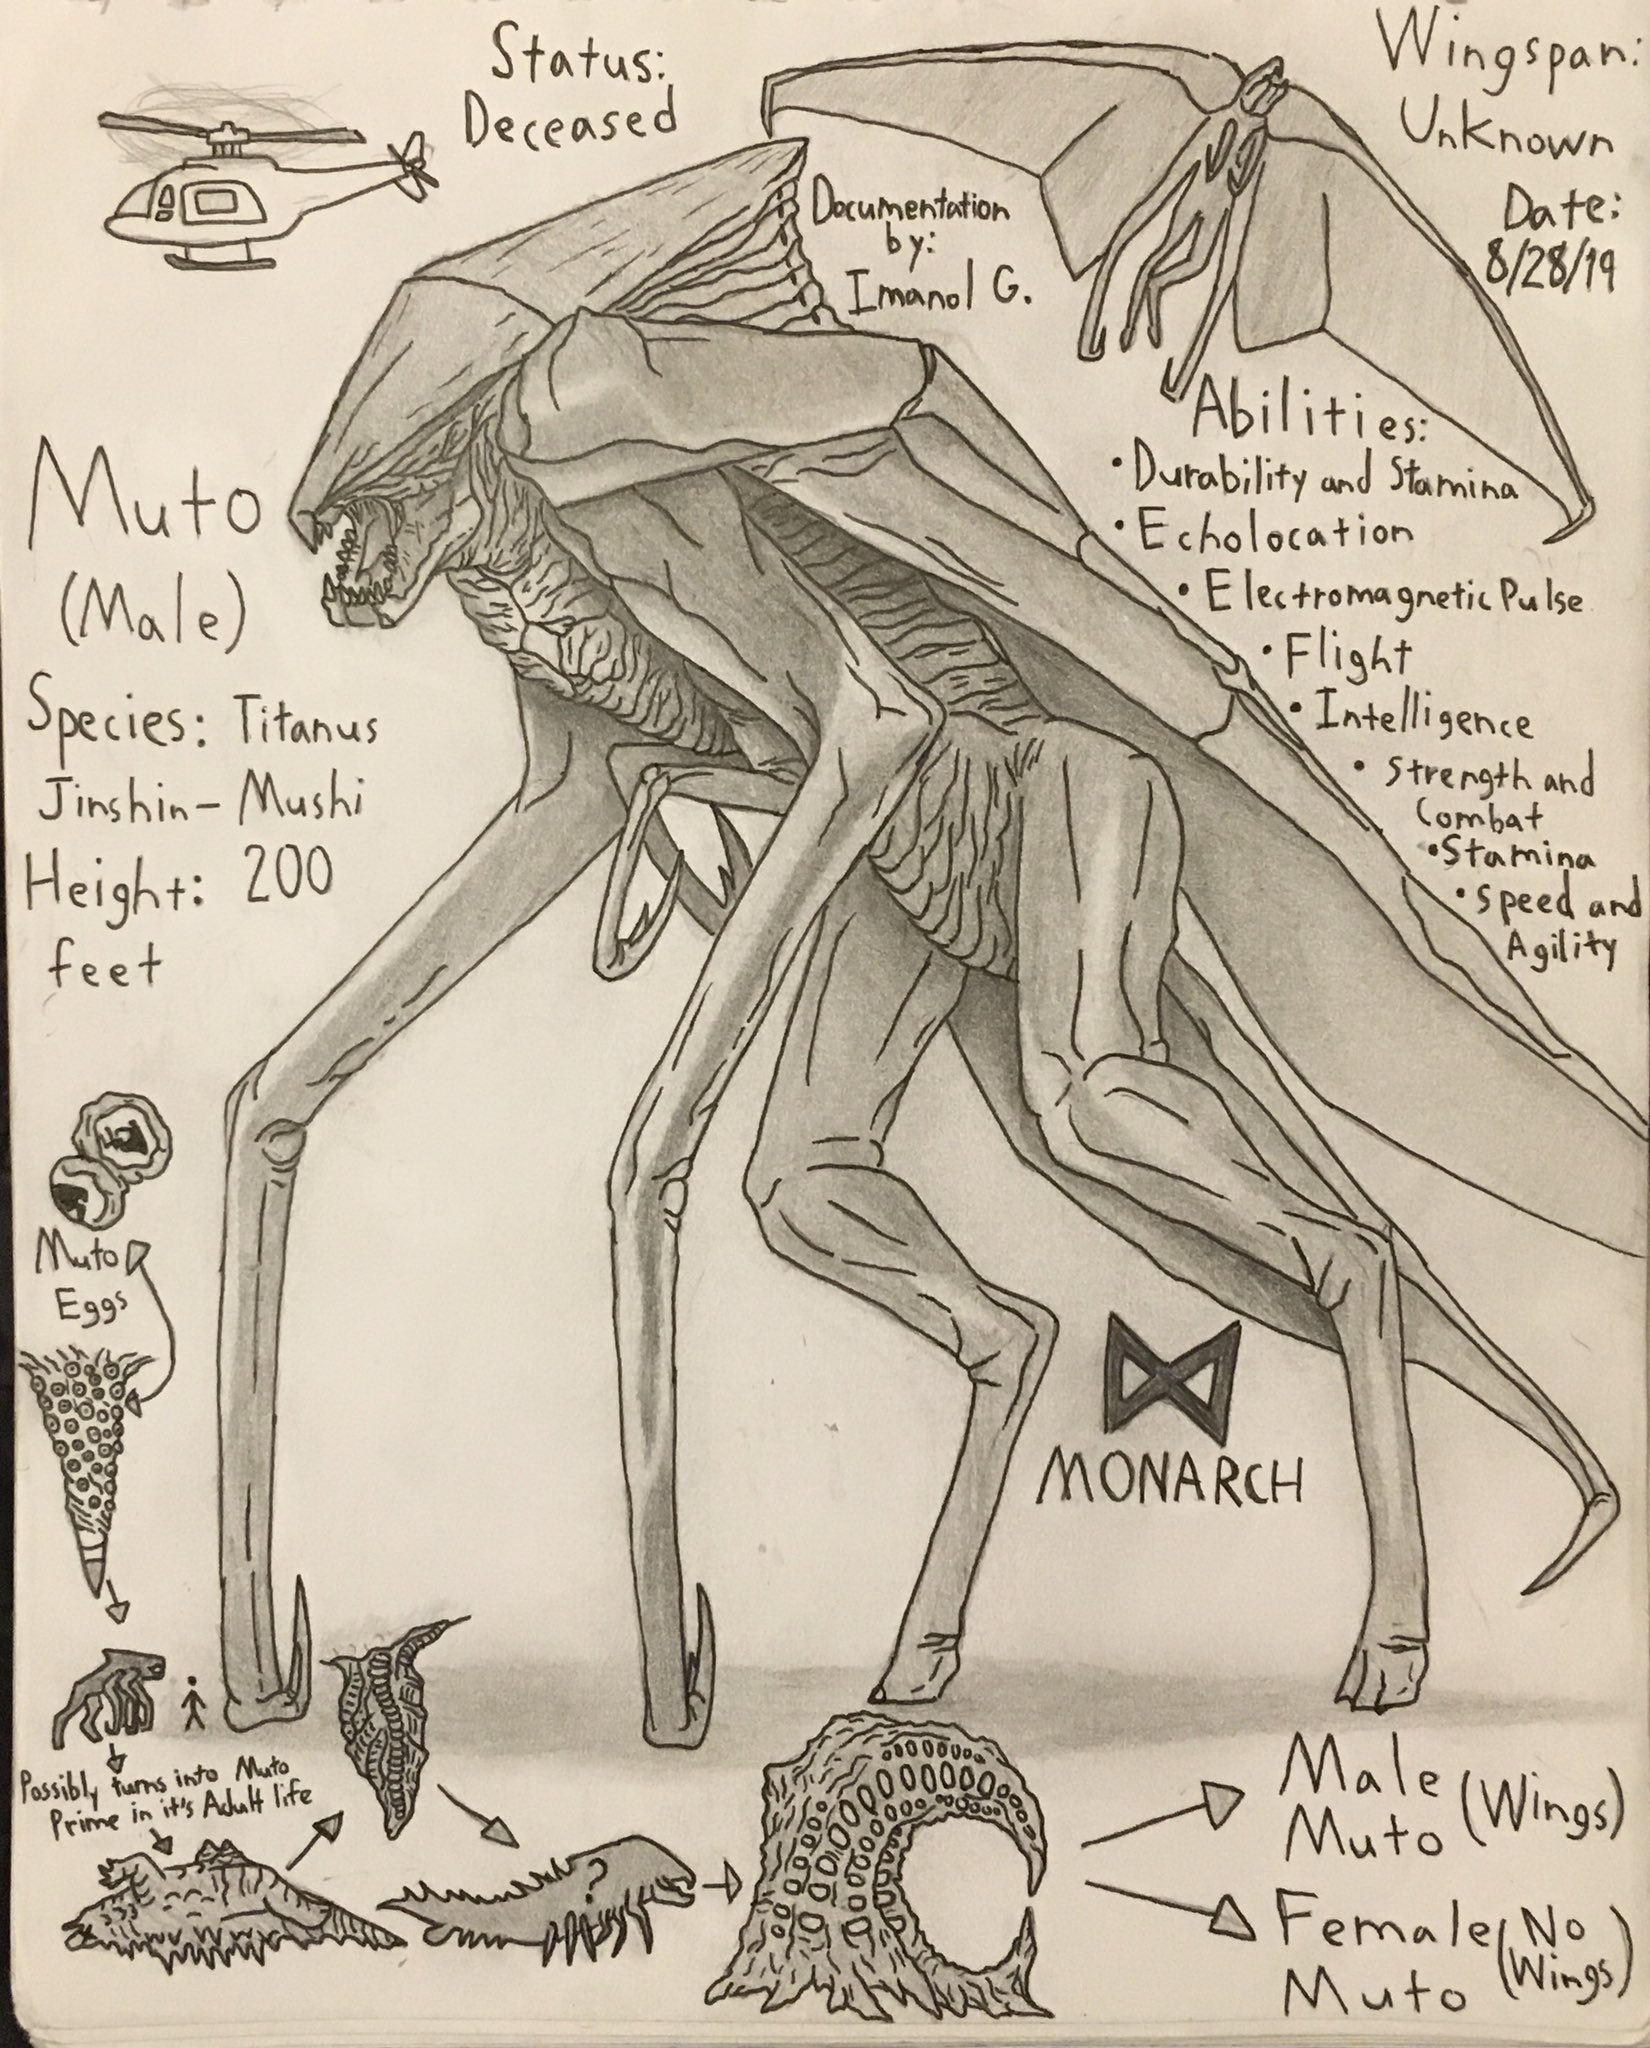 Status:
Deceased
Wingspan:
Unknown
Date:
8/28/19
Documentation
by:
Imanol G.
Muto
(Male)
Species: Titanus
Jinshin-Mushi
Height: 200
feet
Abilities:
• Durability and Stamina
• Echolocation
• Electromagnetic Pulse
• Flight
• Intelligence
• Strength and
Combat
• Stamina
• Speed and
Agility
Muto
Eggs
MONARCH
Possibly turns into Muto
Prime in it's Adult life
?
Male
Muto (Wings)
Female (No
Muto Wings)